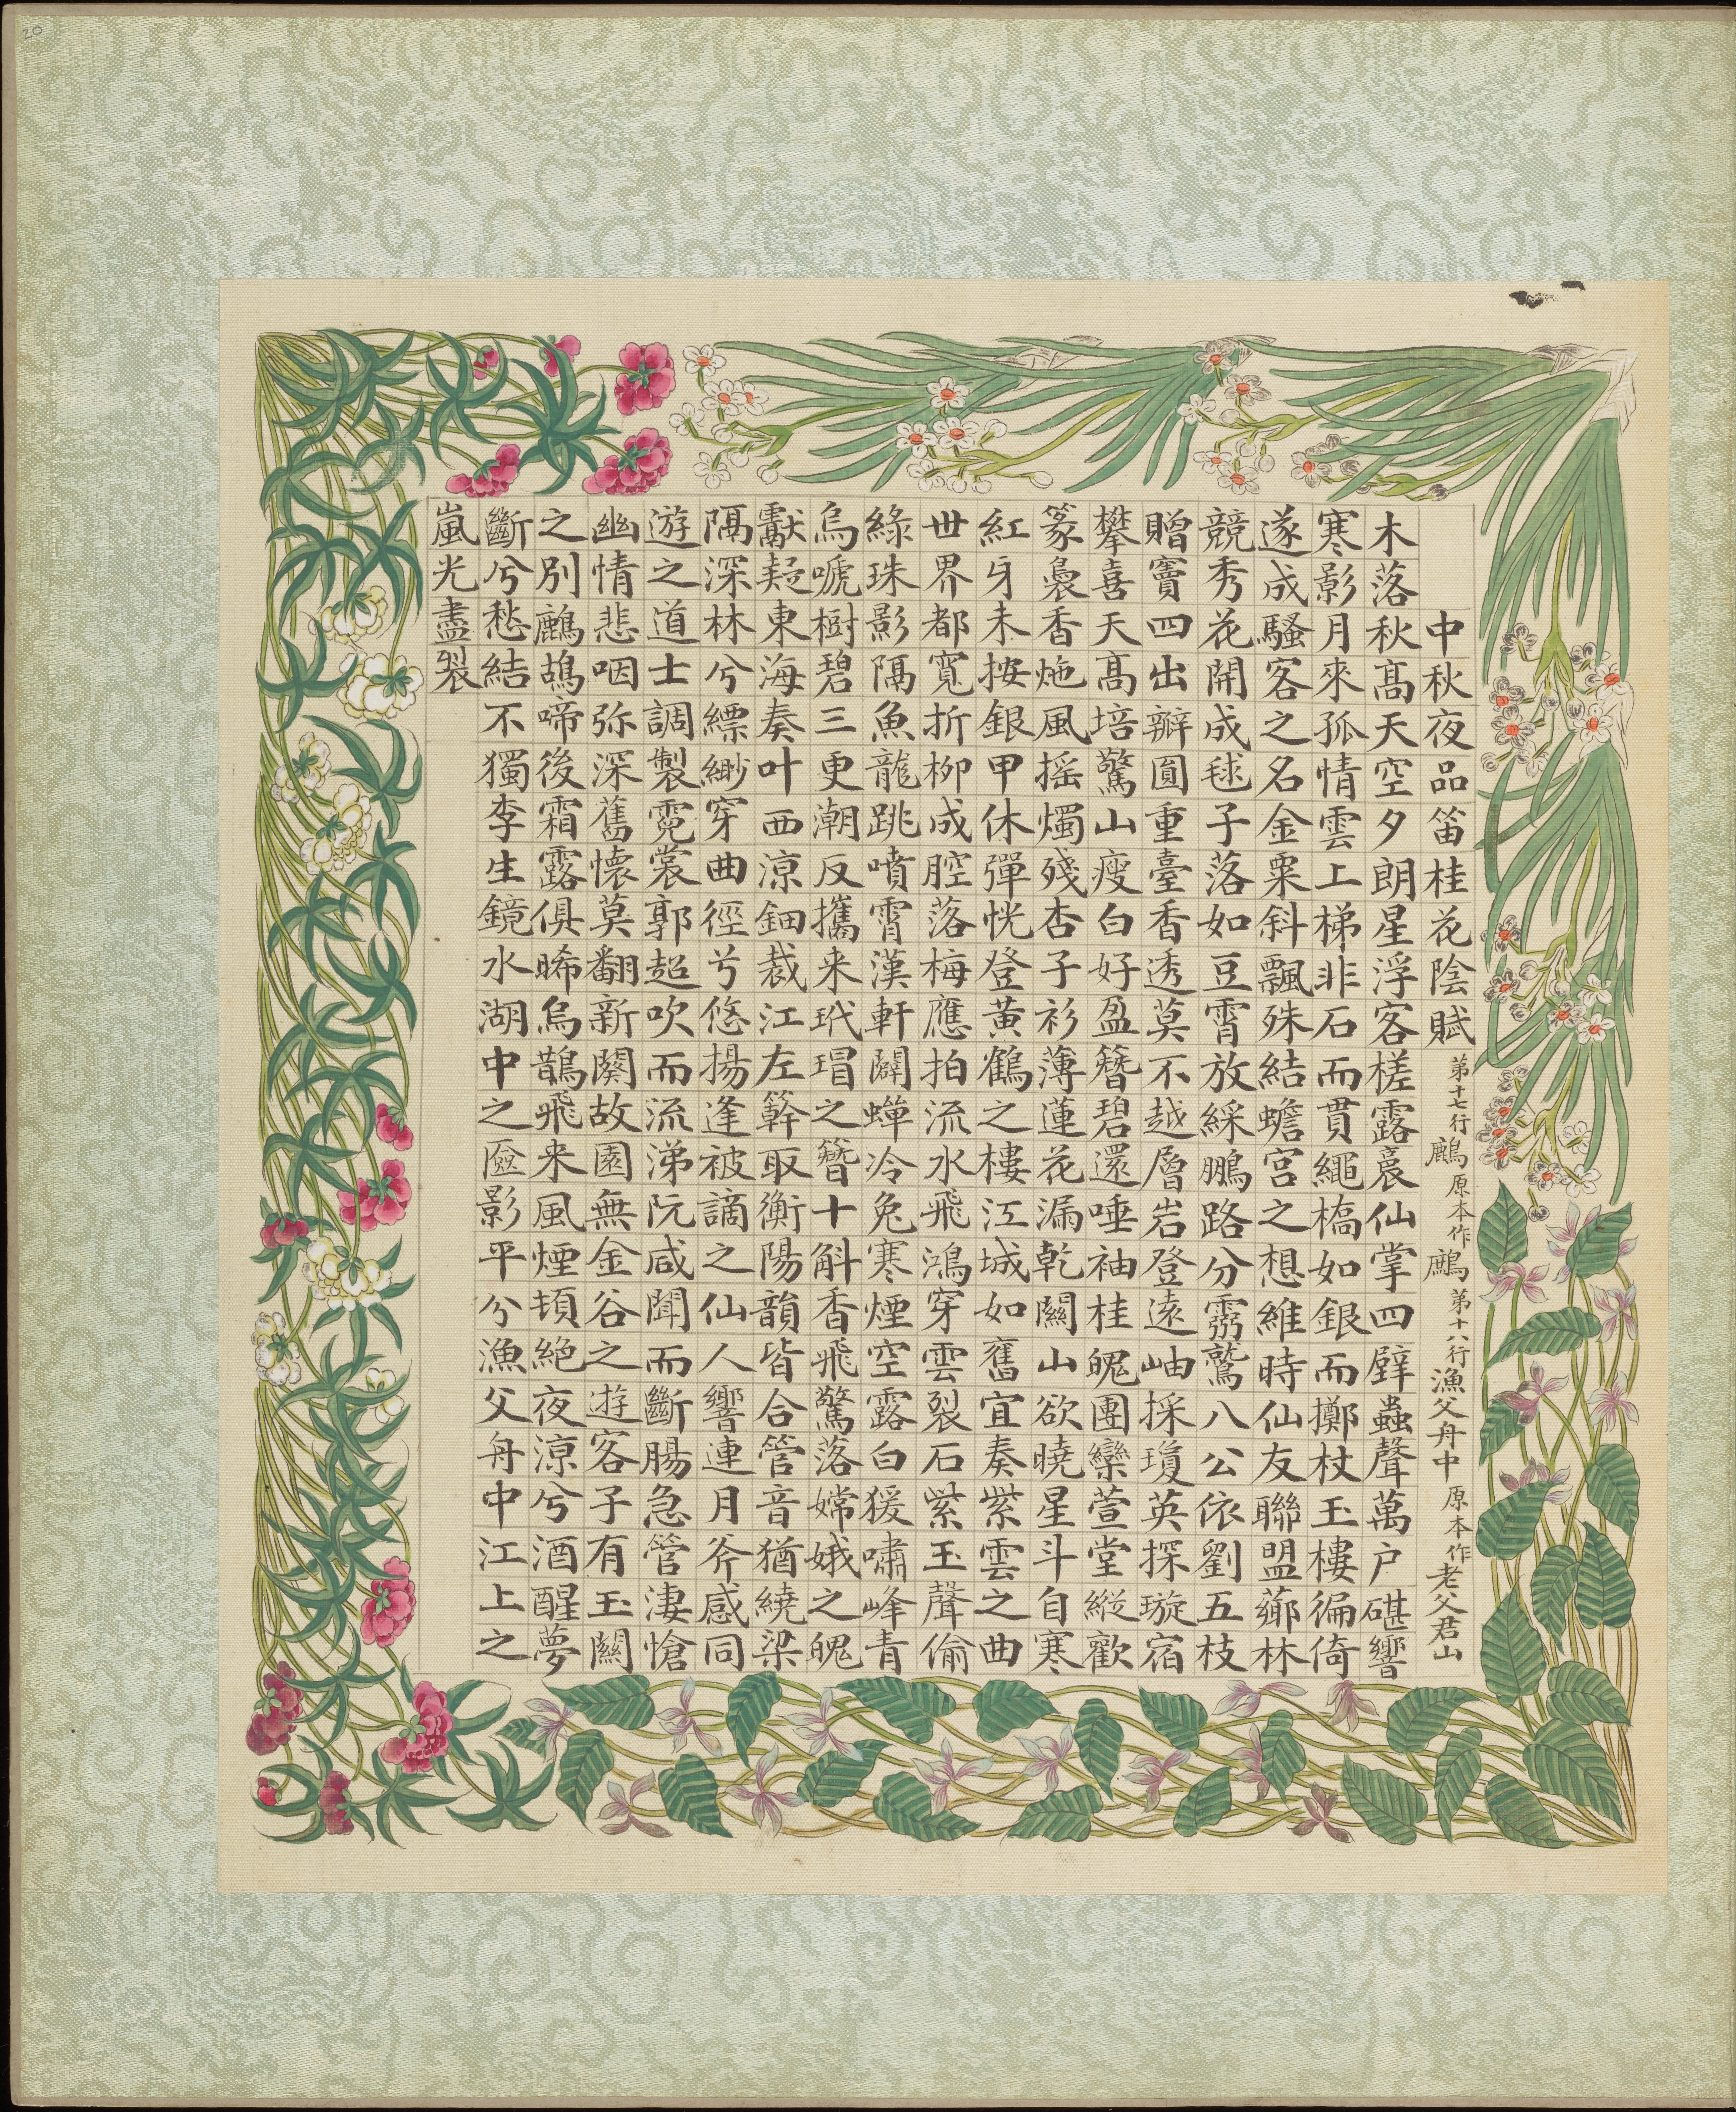 中秋夜品笛桂花陰賦 弟十七行鷓原本作鷓弟十八行漁父舟中原本作老父君山
木落秋高天空夕朗星浮客槎露裛仙掌四壁蟲聲萬户碪響
寒影月來孤情雲上梯非石而貫繩橋如銀而擲杖玉樓徧倚
遂成騷客之名金粟斜飄殊結蟾宮之想維時仙友聯盟薌林
競秀花開成毬子落如豆霄放綵鵬路分霛鷲八公依劉五枝
贈竇四出瓣圓重臺香透莫不越層岩登遠岫採瓊英探璇宿
攀喜天高培驚山瘦白好盈簪碧還唾袖桂魄團欒萱堂縱歡
篆裊香炧風搖燭殘杏子衫薄蓮花漏乾關山欲曉星斗自寒
紅牙未按銀甲休彈恍登黃鶴之樓江城如舊宜奏紫雲之曲
世界都寬折柳成腔落梅應拍流水飛鴻穿雲裂石紫玉聲偷
綠珠影隔魚龍跳噴霄漢軒闢蟬冷兔寒煙空露白猨嘯峰青
烏嗁樹碧三更潮反攜来玳瑁之簪十斛香飛驚落嫦娥之魄
獻疑東海奏叶西涼鈿裁江左簳取衡陽韻皆合管音猶繞梁
隔深林兮縹緲穿曲徑兮悠揚逢被謫之仙人響連月斧感同
遊之道士調製霓裳郭超吹而流涕阮咸聞而斷腸急管淒愴
幽情悲咽弥深舊懷莫翻新闋故園無金谷之遊客子有玉關
之別鷓鴣啼後霜露俱晞烏鵲飛来風煙頓絕夜涼兮酒醒夢
斷兮愁結不獨李生鏡水湖中之匳影平兮漁父舟中江上之
嵐光盡裂
20